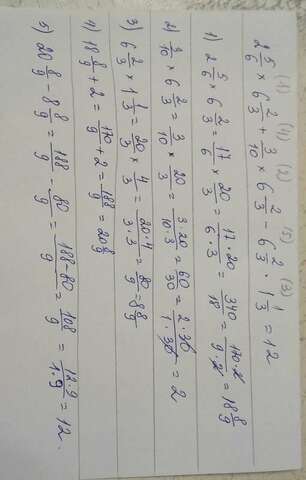 (1) (4) (2) (5) (3)
2 5/6 × 6 2/3 + 3/10 × 6 2/3 - 6 2/3 · 1 1/3 = 12
1) 2 5/6 × 6 2/3 = 17/6 × 20/3 = (17·20)/(6·3) = 340/18 = (170·2)/(9·2) = 18 8/9
2) 3/10 × 6 2/3 = 3/10 × 20/3 = (3·20)/(10·3) = 60/30 = (2·30)/(1·30) = 2
3) 6 2/3 × 1 1/3 = 20/3 × 4/3 = (20·4)/(3·3) = 80/9 = 8 8/9
4) 18 8/9 + 2 = 170/9 + 2 = 188/9 = 20 8/9
5) 20 8/9 - 8 8/9 = 188/9 - 80/9 = (188-80)/9 = 108/9 = (12·9)/(1·9) = 12.